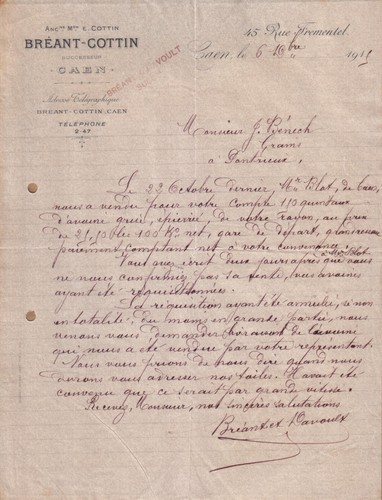 Ancne Mon E. COTTIN
BRÉANT-COTTIN
SUCCESSEUR
CAEN
Adresse Télégraphique
BRÉANT-COTTIN, CAEN
TÉLÉPHONE
2-47
45 Rue Frementel
Caen, le 6 10bre 191
BRÉAN VOULT
Monsieur J. Bénech
Grains
à Pontrieux
Le 22 Octobre dernier, Mr Pilot, de Caen,
nous a vendu pour votre compte 110 quintaux
d'avoine grise, épierrée, de votre rayon, au prix
de 21, les 100 Ks net, gare de départ,
paiement comptant net à votre convenance.
Mr Pilot
Tout écrit deux jours après que nous
ne nous comptiez pas la vente, vos avoines
ayant été réquisitionnées.
La réquisition ayant été annulée, si non
en totalité, du moins en grande partie, nous
venons vous demander livraison de l'avoine
qui nous a été vendue par votre représentant.
Nous vous prions de nous dire quand nous
devrons vous adresser nos toiles. Il avait été
convenu que ce serait par grande vitesse.
Recevez, Monsieur, nos sincères salutations
Bréant et Davoult